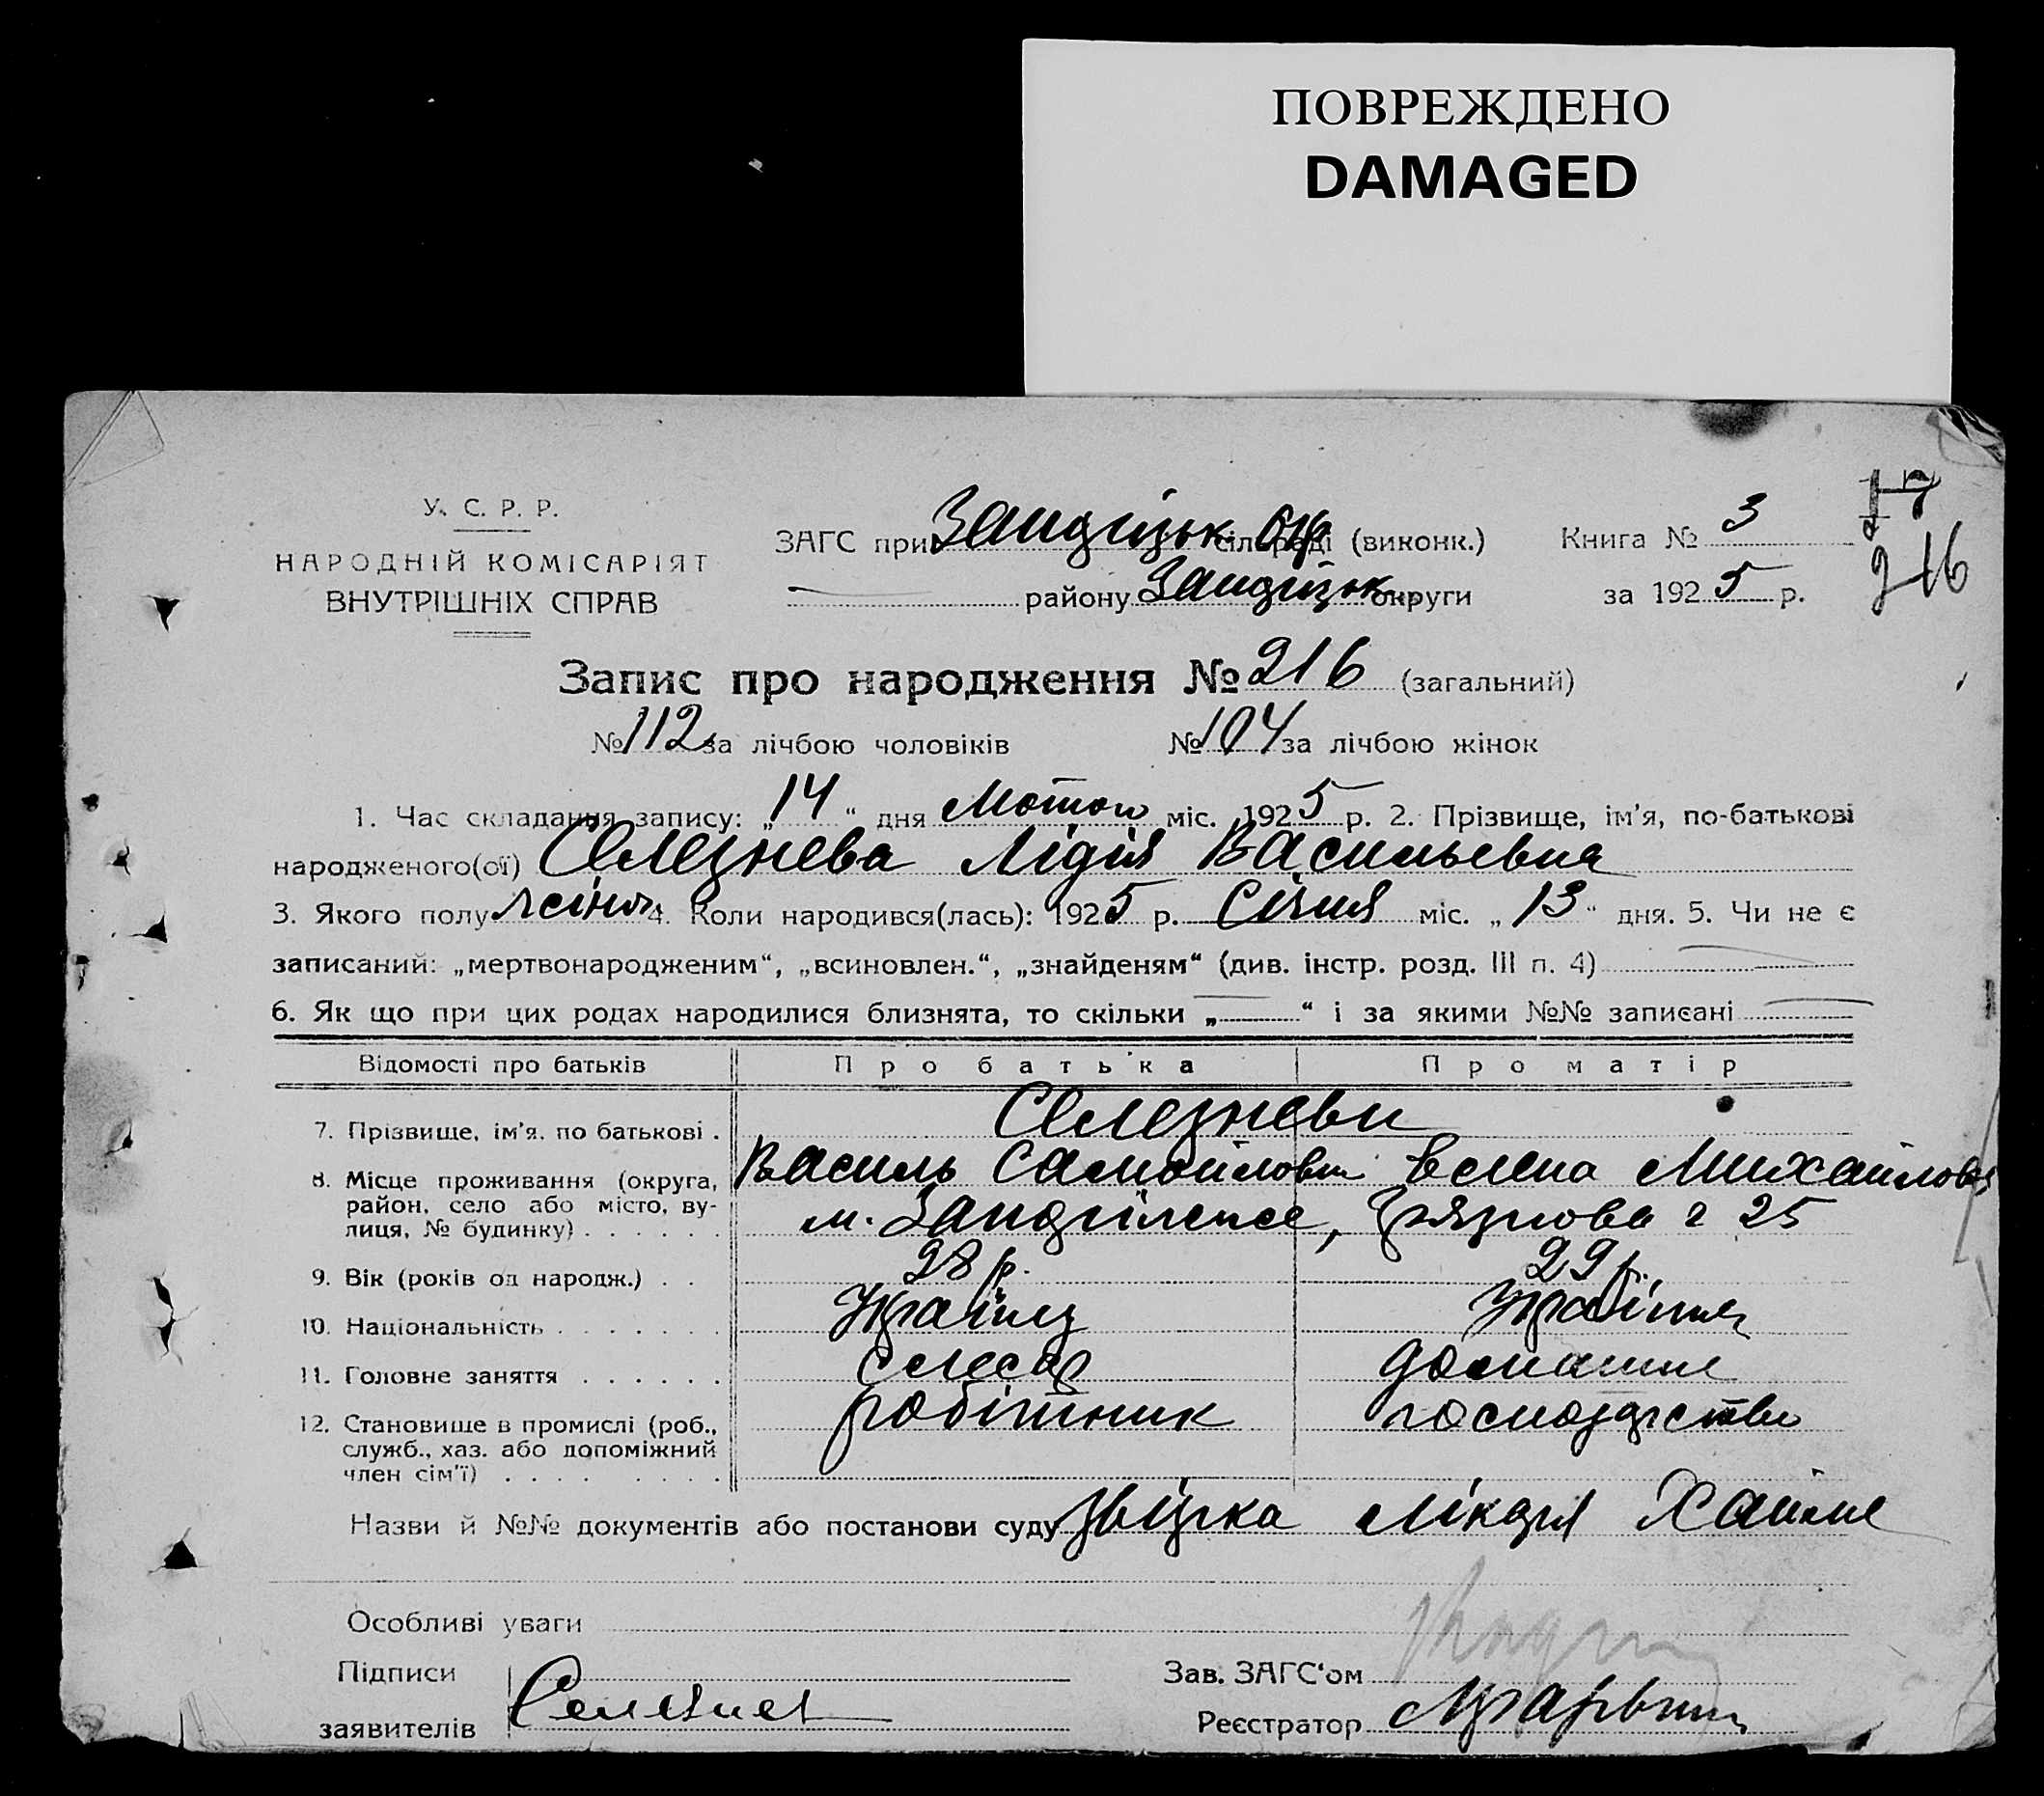 ПОВРЕЖДЕНО
DAMAGED
У. С. Р. Р.
НАРОДНІЙ КОМІСАРІЯТ
ВНУТРІШНІХ СПРАВ
ЗАГС при сільраді (виконк.)
району округи
Книга № 3
за 1925 р.
17
216
Запис про народження № 216 (загальний)
№ 112 за лічбою чоловіків № 104 за лічбою жінок
1. Час складання запису: „14“ дня Лютого міс. 1925 р. 2. Прізвище, ім'я, по-батькові
народженого(ої) Селезнева Лідія Васильевна
3. Якого полу жіноч 4. Коли народився(лась): 1925 р. Січня міс. „13“ дня. 5. Чи не є
записаний: „мертвонародженим“, „всиновлен.“, „знайденям“ (див. інстр. розд. III п. 4)
6. Як що при цих родах народилися близнята, то скільки „ “ і за якими №№ записані
Відомості про батьків Про батька Про матір
7. Прізвище, ім'я. по батькові . Селезневи
Василь Самойлович Елена Михайлов
8. Місце проживання (округа, район, село або місто, вулиця, № будинку) . . . . . . м. , Грязнова 25
9. Вік (років од народж.) . . 28 р. 29 р.
10. Національність . . . . . . . Українц Українк
11. Головне заняття . . . . . . слесар домашнє
12. Становище в промислі (роб., служб., хаз. або допоміжний член сім'ї) . . . . . . . . робітник господарство
Назви й №№ документів або постанови суду Звістка лікаря
Особливі уваги
Підписи
заявителів Селезнев
Зав. ЗАГС'ом
Реєстратор